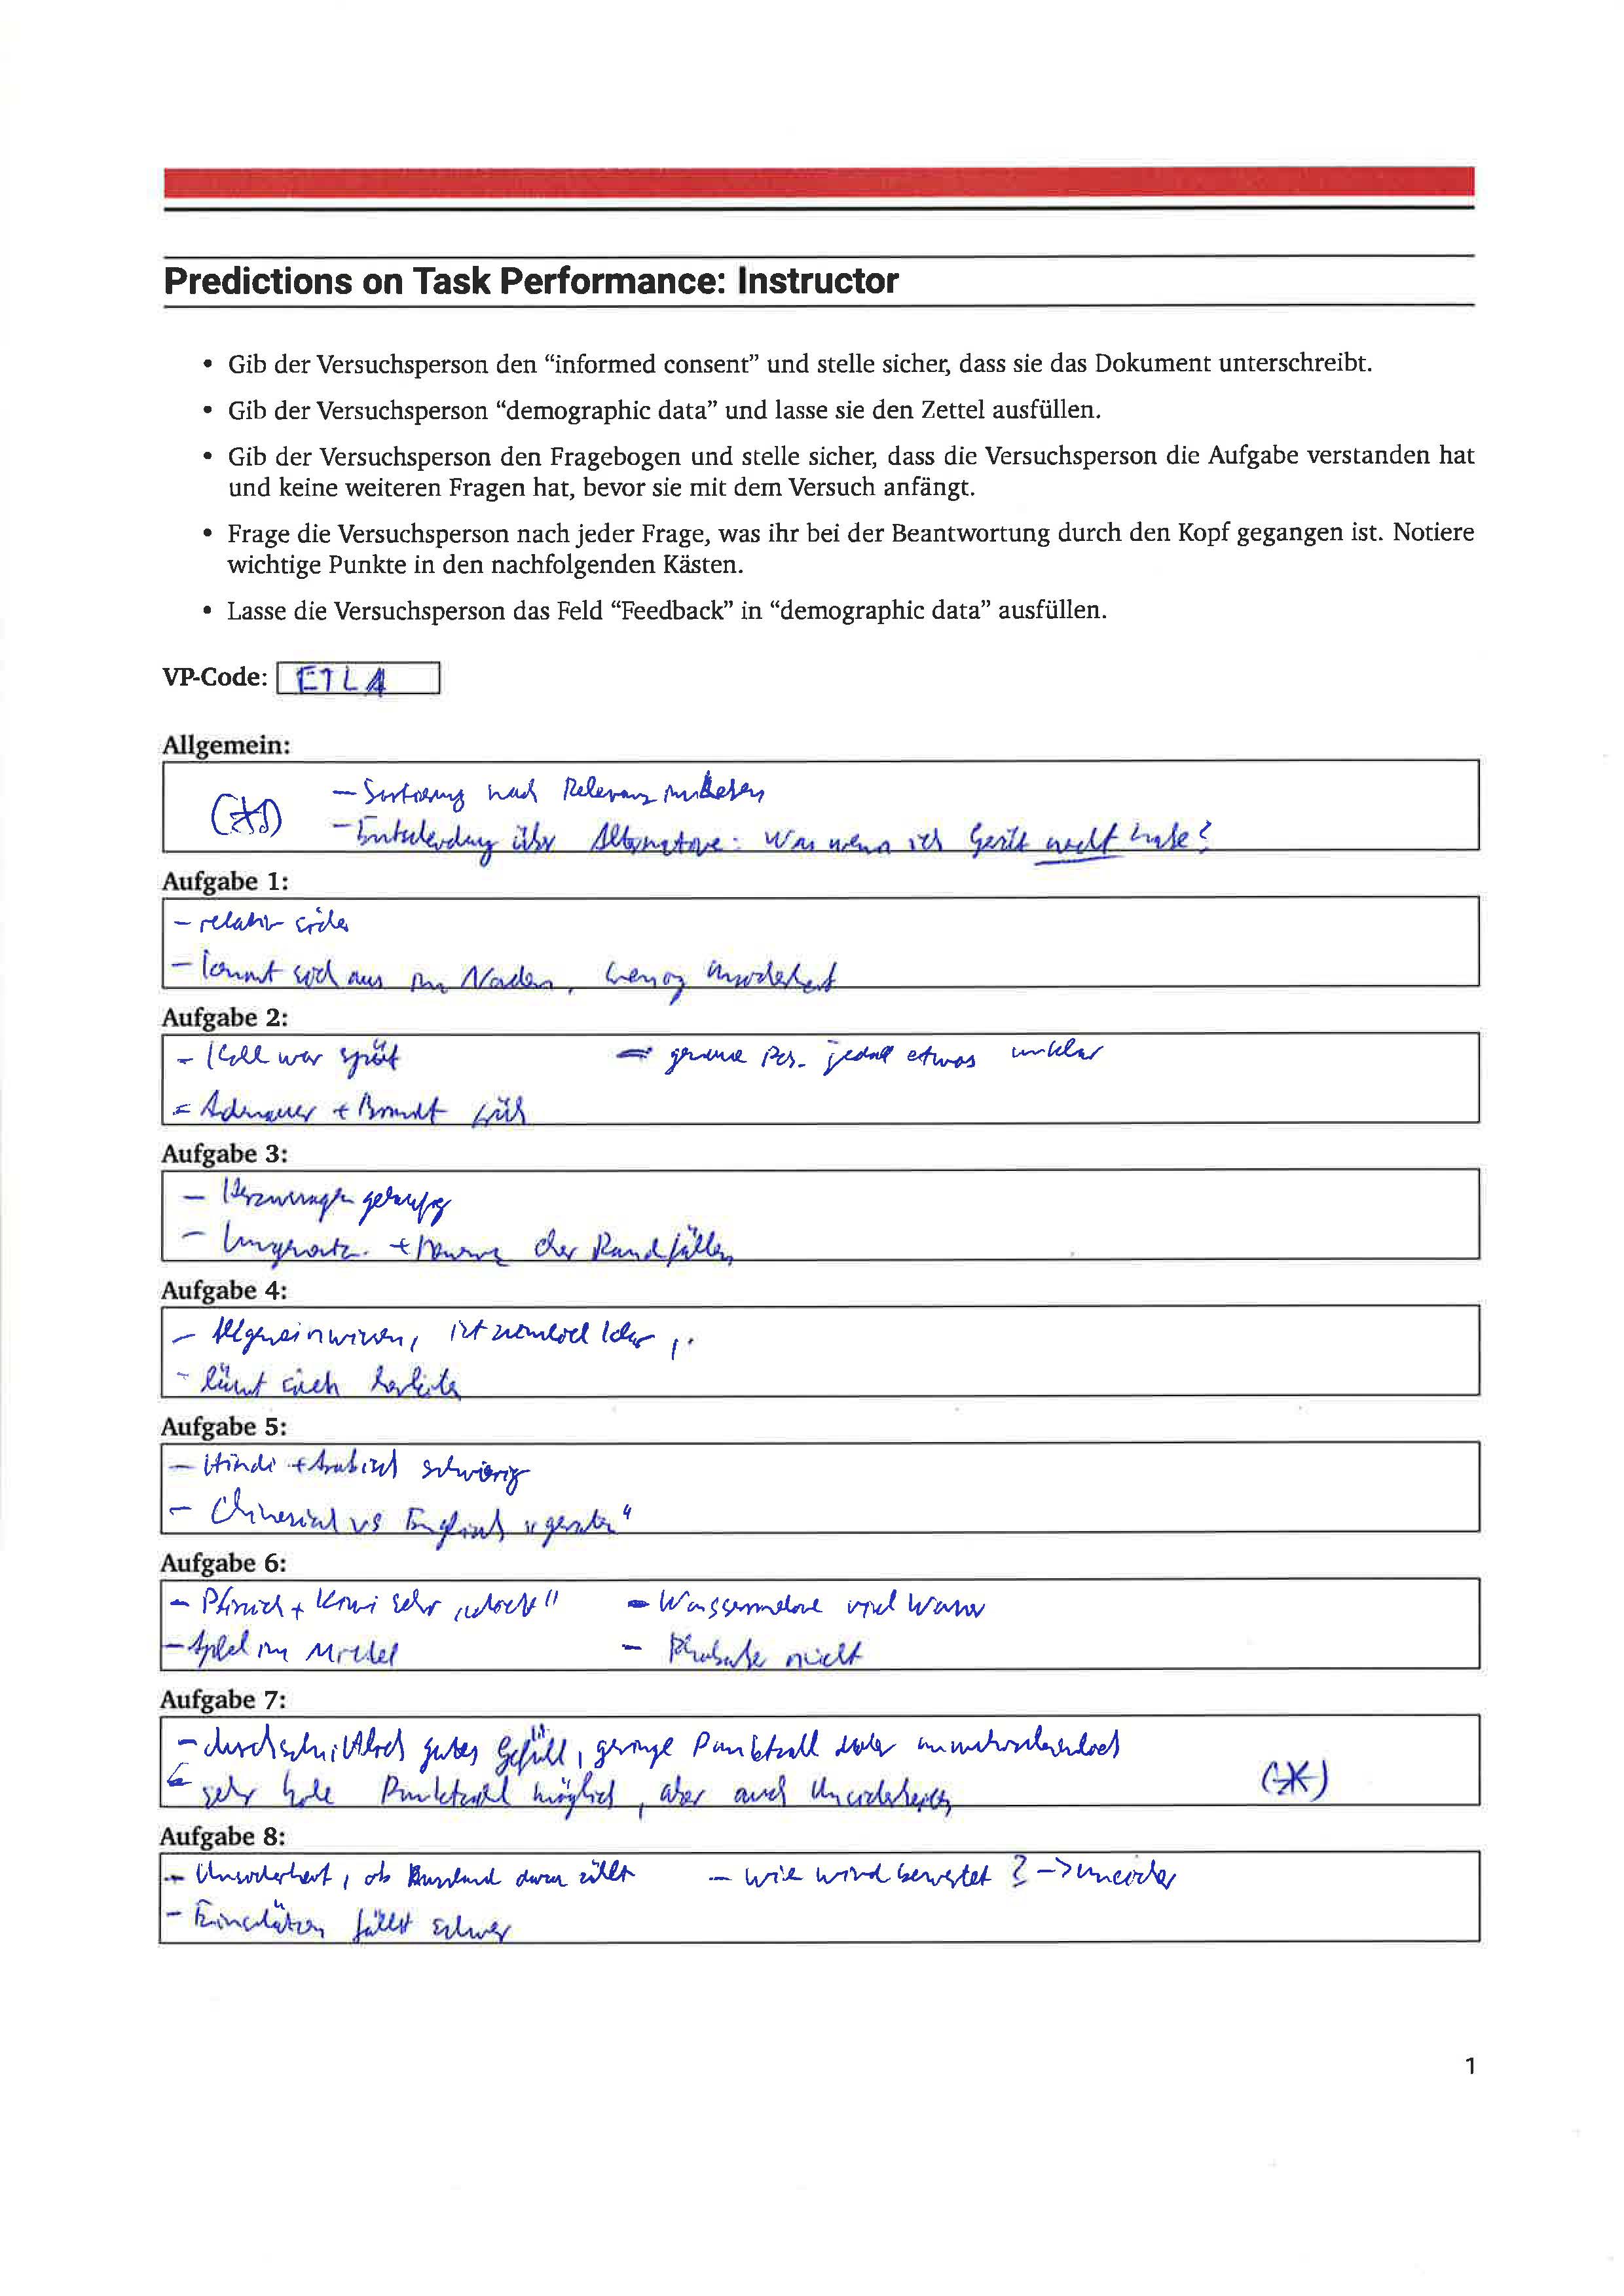 Predictions on Task Performance: Instructor
• Gib der Versuchsperson den “informed consent” und stelle sicher, dass sie das Dokument unterschreibt.
• Gib der Versuchsperson “demographic data” und lasse sie den Zettel ausfüllen.
• Gib der Versuchsperson den Fragebogen und stelle sicher, dass die Versuchsperson die Aufgabe verstanden hat
und keine weiteren Fragen hat, bevor sie mit dem Versuch anfängt.
• Frage die Versuchsperson nach jeder Frage, was ihr bei der Beantwortung durch den Kopf gegangen ist. Notiere
wichtige Punkte in den nachfolgenden Kästen.
• Lasse die Versuchsperson das Feld “Feedback” in “demographic data” ausfüllen.
VP-Code: ETLA
Allgemein:
- Sortierung nach Relevanz
(*) - Entscheidung über Alternative: Was wenn ich Gerät nicht habe?
Aufgabe 1:
- relativ sicher
- kennt sich aus im Norden, wenig Unsicherheit
Aufgabe 2:
- Kohl war spät - genaue Pos. jedoch etwas unklar
- Adenauer + Brandt früh
Aufgabe 3:
- Verzweigungen geläufig
- der Randfällen
Aufgabe 4:
- Allgemeinwissen, ist ziemlich klar
- könnt auch herleiten
Aufgabe 5:
- Hindi + Arabisch schwierig
- Chinesisch vs Englisch "geraten"
Aufgabe 6:
- Pfirsich + Kiwi sehr - Wassermelone viel Wasser
- Apfel im Mittel - Rhabarber nicht
Aufgabe 7:
- durchschnittlich gutes Gefühl, geringe Punktzahl daher unwahrscheinlich
sehr hohe Punktzahl möglich, aber auch Unsicherheiten (*)
Aufgabe 8:
- Unsicherheit, ob Russland dazu zählt - wie wird bewertet? -> unsicher
- Einschätzen fällt schwer
1